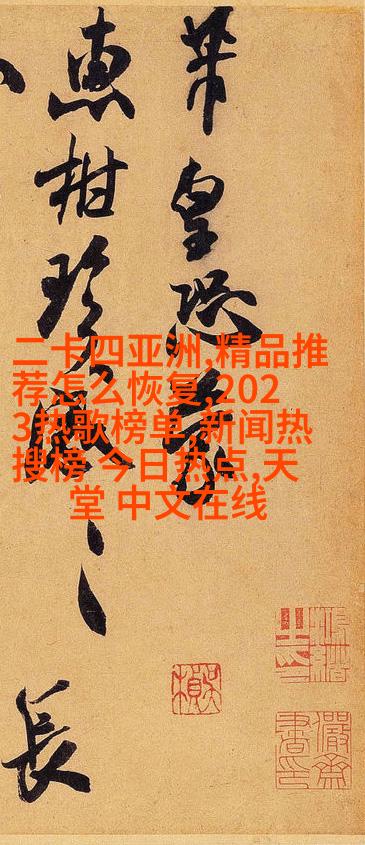 芾皇恐
惠柑珍感
長
二卡四亚洲,精品推
荐怎么恢复,202
3热歌榜单,新闻热
搜榜 今日热点,天
堂 中文在线